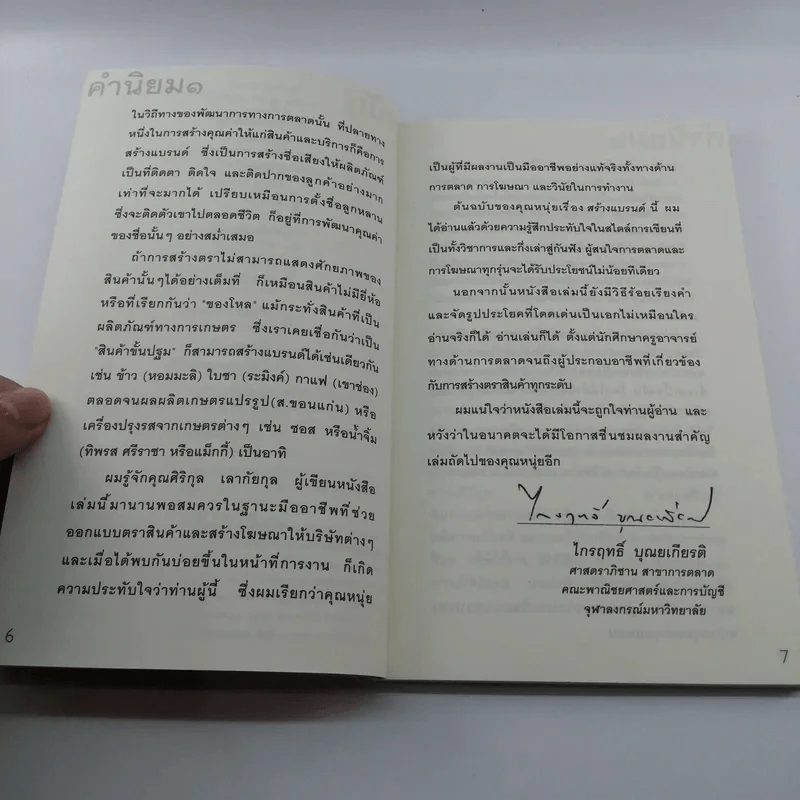 คำนิยม๑
ในวิถีทางของพัฒนาการทางการตลาดนั้น ที่ปลายทาง
หนึ่งในการสร้างคุณค่าให้แก่สินค้าและบริการก็คือการ
สร้างแบรนด์ ซึ่งเป็นการสร้างชื่อเสียงให้ผลิตภัณฑ์
เป็นที่ติดตา ติดใจ และติดปากของลูกค้าอย่างมาก
เท่าที่จะมากได้ เปรียบเหมือนการตั้งชื่อลูกหลาน
ซึ่งจะติดตัวเขาไปตลอดชีวิต ก็อยู่ที่การพัฒนาคุณค่า
ของชื่อนั้นๆ อย่างสม่ำเสมอ
ถ้าการสร้างตราไม่สามารถแสดงศักยภาพของ
สินค้านั้นๆได้อย่างเต็มที่ ก็เหมือนสินค้าไม่มียี่ห้อ
หรือที่เรียกกันว่า "ของโหล" แม้กระทั่งสินค้าที่เป็น
ผลิตภัณฑ์ทางการเกษตร ซึ่งเราเคยเชื่อกันว่าเป็น
"สินค้าขั้นปฐม" ก็สามารถสร้างแบรนด์ได้เช่นเดียวกัน
เช่น ข้าว (หอมมะลิ) ใบชา (ระมิงค์) กาแฟ (เขาช่อง)
ตลอดจนผลผลิตเกษตรแปรรูป(ส.ขอนแก่น) หรือ
เครื่องปรุงรสจากเกษตรต่างๆ เช่น ซอส หรือน้ำจิ้ม
(ทิพรส ศรีราชา หรือแม็กกี้) เป็นอาทิ
ผมรู้จักคุณศิริกุล เลากัยกุล ผู้เขียนหนังสือ
เล่มนี้มานานพอสมควรในฐานะมืออาชีพที่ช่วย
ออกแบบตราสินค้าและสร้างโฆษณาให้บริษัทต่างๆ
และเมื่อได้พบกันบ่อยขึ้นในหน้าที่การงาน ก็เกิด
ความประทับใจว่าท่านผู้นี้ ซึ่งผมเรียกว่าคุณหนุ่ย
6
เป็นผู้ที่มีผลงานเป็นมืออาชีพอย่างแท้จริงทั้งทางด้าน
การตลาด การโฆษณา และวินัยในการทำงาน
ต้นฉบับของคุณหนุ่ยเรื่อง สร้างแบรนด์ นี้ ผม
ได้อ่านแล้วด้วยความรู้สึกประทับใจในสไตล์การเขียนที่
เป็นทั้งวิชาการและกึ่งเล่าสู่กันฟัง ผู้สนใจการตลาดและ
การโฆษณาทุกรุ่นจะได้รับประโยชน์ไม่น้อยทีเดียว
นอกจากนั้นหนังสือเล่มนี้ยังมีวิธีร้อยเรียงคำ
และจัดรูปประโยคที่โดดเด่นเป็นเอกไม่เหมือนใคร
อ่านจริงก็ได้ อ่านเล่นก็ได้ ตั้งแต่นักศึกษาครูอาจารย์
ทางด้านการตลาดจนถึงผู้ประกอบอาชีพที่เกี่ยวข้อง
กับการสร้างตราสินค้าทุกระดับ
ผมแน่ใจว่าหนังสือเล่มนี้จะถูกใจท่านผู้อ่าน และ
หวังว่าในอนาคตจะได้มีโอกาสชื่นชมผลงานสำคัญ
เล่มถัดไปของคุณหนุ่ยอีก
ไกรฤทธิ์ บุณยเกียรติ
ศาสตราภิชาน สาขาการตลาด
คณะพาณิชยศาสตร์และการบัญชี
จุฬาลงกรณ์มหาวิทยาลัย
7